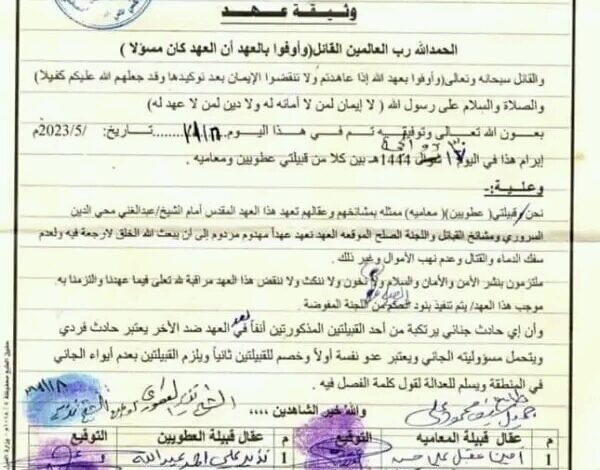 وثيقة عهد
الحمدلله رب العالمين القائل(وأوفوا بالعهد أن العهد كان مسؤلا )
والقائل سبحانه وتعالى(وأوفوا بعهد الله إذا عاهدتم ولا تنقضوا الإيمان بعد توكيدها وقد جعلهم الله عليكم كفيلا)
والصلاة والسلام على رسول الله ( لا إيمان لمن لا أمانه له ولا دين لمن لا عهد له)
بعون الله تعالى وتوفيقه تم في هذا اليوم تاريخ: /5/2023م
إبرام هذا في اليوم 1444هـ بين كلا من قبيلتي عطويين ومعاميه .
وعلية:-
نحن قبيلتي( عطويين) (معاميه) ممثله بمشائخهم وعقالهم تعهد هذا العهد المقدس أمام الشيخ/عبدالغني محي الدين
السروري ومشائخ القبائل واللجنة الصلح الموقعه العهد تعهد عهداً مهدوم مردوم إلى أن يبعث الله الخلق لارجعة فيه ولعدم
سفك الدماء والقتال وعدم نهب الأموال وغير ذلك .
ملتزمون بنشر الأمن والأمان والسلام ولا نخون ولا ننكث ولا ننقض هذا العهد مراقبة لله تعلى فيما عهدنا والتزمنا به.
موجب هذا العهد/ يتم تنفيذ بنود الحكم من اللجنة المفوضة .
وأن إي حادث جنائي يرتكبة من أحد القبيلتين المذكورتين أنفاً في العهد ضد الأخر يعتبر حادث فردي
ويتحمل مسؤوليته الجاني ويعتبر عدو نفسة أولاً وخصم للقبيلتين ثانياً ويلزم القبيلتين بعدم أيواء الجاني
في المنطقة ويسلم للعدالة لقول كلمة الفصل فيه .
والله خير الشاهدين
م عقال قبيلة المعاميه التوقيع م عقال قبيلة العطويين التوقيع
1 امين عقيل علي حسن 1 علي احمد عبدالله